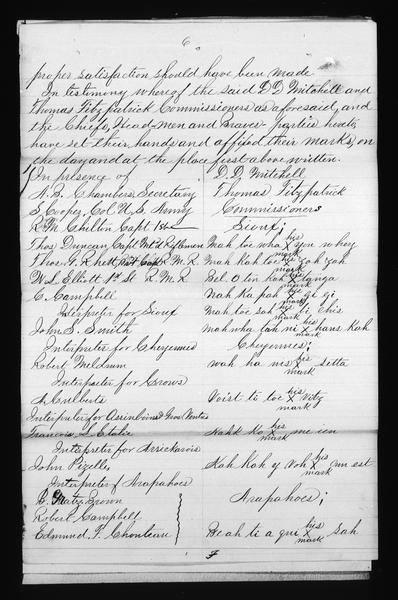 6
proper satisfaction should have been made
In testimony whereof the said D D Mitchell and
Thomas Fitzpatrick Commissioners as aforesaid, and
the Chiefs, Head-men and Braves parties hereto
have set their hands and affixed their marks, on
the day and at the place first above written.
In presence of D. D. Mitchell
A. B. Chambers, Secretary Thomas Fitzpatrick
S. Cooper, Col U.S. Army Commissioners
R. H. Chilton Capt 1st Sioux;
Thos Duncan, Capt Mt'd Riflemen Mah toe wha his x mark you whey
Thos. G. Rhett R. M. R. Mah kah toe his x mark zah zah
W. L. Elliott 1st Lt R. M. R. Bel. O ton kah his x mark tanga
C. Campbell Nah ka pah his x mark gi gi
Interpreter for Sioux Mah toe sah his x mark bi chis
John S. Smith Meh wha tah ni his x mark hans kah
Interpreter for Cheyennes Cheyennes;
Robert Meldrum Wah ha nis his x mark satta
Interpreter for Crows
H. Culberts Voist ti toe his x mark vitz
Interpreter for Assiniboins & Gros Ventres
Francois L. Etalie Nahk ko his x mark me ien
Interpreter for Arrickarees
John Pizelle Koh kah y woh his x mark cum est
Interpreter f Arapahoes
B. Gratz Brown Arapahoes;
Robert Campbell
Edmund F. Chouteau Beah ti a qui his x mark sah